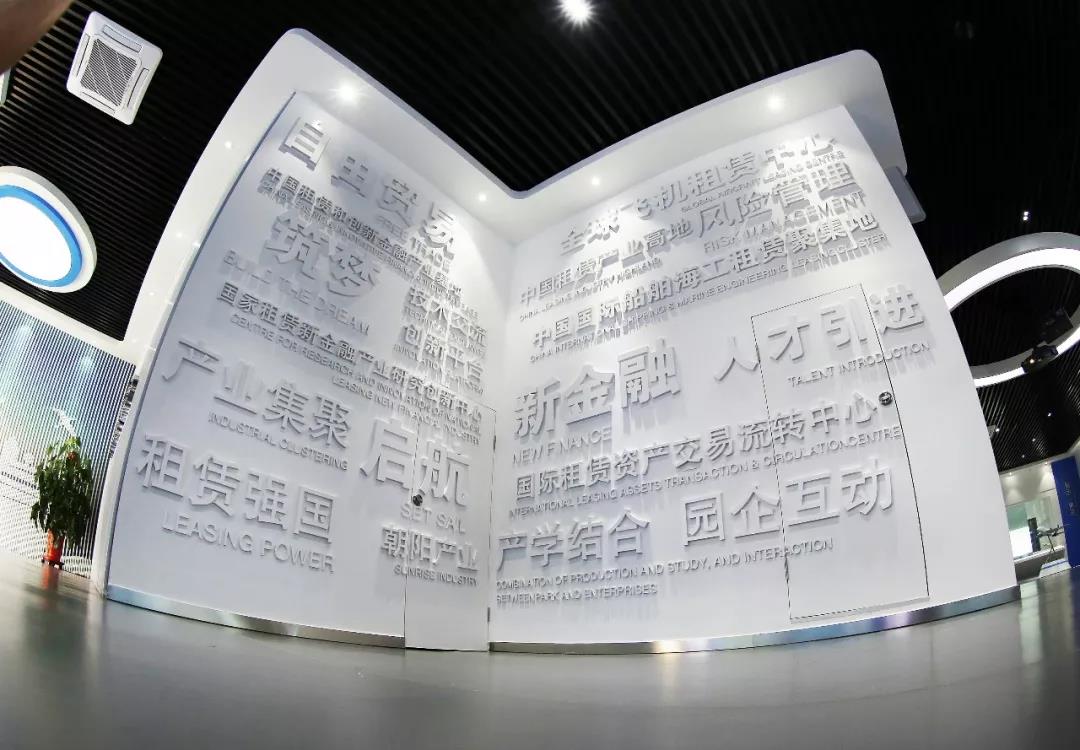 自由贸易
FREE TRADE
中国租赁和创新金融产业
筑梦
BUILD THE DREAM
技术交流
国家租赁新金融产业研究创新中心
CENTRE FOR RESEARCH AND INNOVATION OF NATIONAL
LEASING NEW FINANCIAL INDUSTRY
创新平台
产业集聚
INDUSTRIAL CLUSTERING
启航
SET SAIL
租赁强国
LEASING POWER
朝阳产业
SUNRISE INDUSTRY
全球飞机租赁中心
GLOBAL AIRCRAFT LEASING CENTRE
中国租赁产业高地
CHINA LEASING INDUSTRY HIGHLAND
风险管理
RISK MANAGEMENT
中国国际船舶海工租赁聚集地
CHINA INTERNATIONAL SHIPPING & MARINE ENGINEERING LEASING CLUSTER
新金融
NEW FINANCE
人才引进
TALENT INTRODUCTION
国际租赁资产交易流转中心
INTERNATIONAL LEASING ASSETS TRANSACTION & CIRCULATION CENTRE
产学结合 园企互动
COMBINATION OF PRODUCTION AND STUDY, AND INTERACTION
BETWEEN PARK AND ENTERPRISES